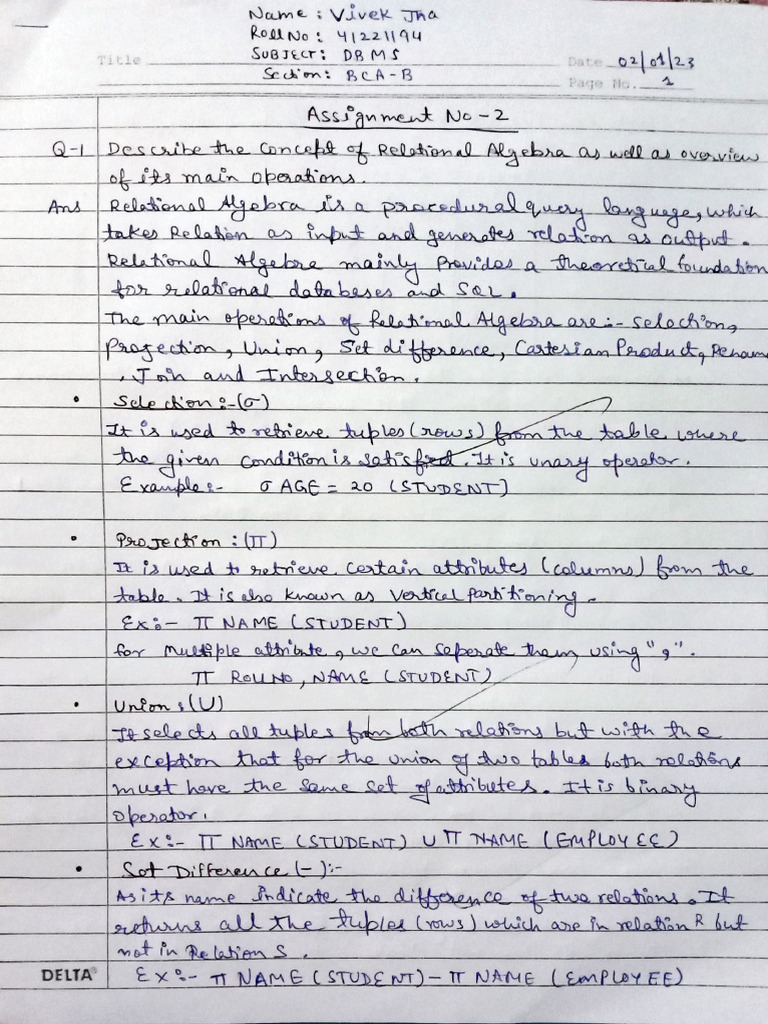 Name : Vivek Jha
Roll No : 41221194
SUBJECT : DBMS
Title Date 02/01/23
Section : BCA-B
Page No. 1
Assignment No - 2
Q-1 Describe the Concept of Relational Algebra as well as overview
of its main Operations.
Ans Relational Algebra is a procedural query language, which
takes Relation as input and generates relation as output.
Relational Algebra mainly Provides a theoretical foundation
for relational databases and SQL.
The main operations of Relational Algebra are :- Selection,
Projection, Union, Set difference, Cartesian Product, Rename
, Join and Intersection.
• Selection :- (σ)
It is used to retrieve tuples (rows) from the table where
the given condition is satisfied. It is unary operator.
Example :- σ AGE = 20 (STUDENT)
• Projection : (π)
It is used to retrieve certain attributes (columns) from the
table. It is also known as vertical partitioning.
Ex :- π NAME (STUDENT)
for multiple attribute, we can seperate them using ",".
π ROLLNO, NAME (STUDENT)
• Union : (U)
It selects all tuples from both relations but with the
exception that for the union of two tables both relations
must have the same set of attributes. It is binary
operator.
Ex :- π NAME (STUDENT) U π NAME (EMPLOYEE)
• Set Difference (-) :-
As its name indicate the difference of two relations. It
returns all the tuples (rows) which are in relation R but
not in Relation S.
DELTA® Ex :- π NAME (STUDENT) - π NAME (EMPLOYEE)